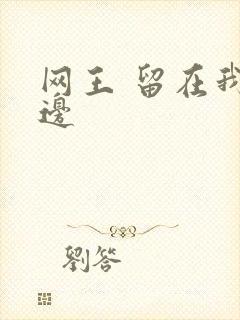 网王 留在我
邊
劉答